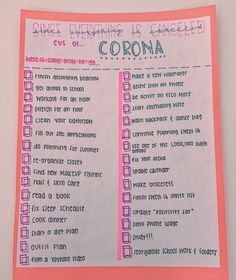 SINCE EVERYTHING IS CANCELED
CUZ OF ...
CORONA
here is some stuff to do..
finish decorating bedroom
get ahead in school
workout for an hour
stretch for an hour
clean your bathroom
fill out job applications
do planning for summer
re-organize closet
find new makeup routine
nail & skin care
read a book
fix sleep schedule
cook dinner
start a diet plan
outfit plan
film a youtube video
make a new wallpaper
delete stuff my phone
be active on vsco more
start journaling more
wash backpack & dance bag
continue planning sweet 16
use one of the 1,000,000 bath bombs
fix your alexa
update calendar
make bracelets
finish sweet 16 invite list
update "positivity jar"
limit phone usage
study!!!
reorganize school work & folders